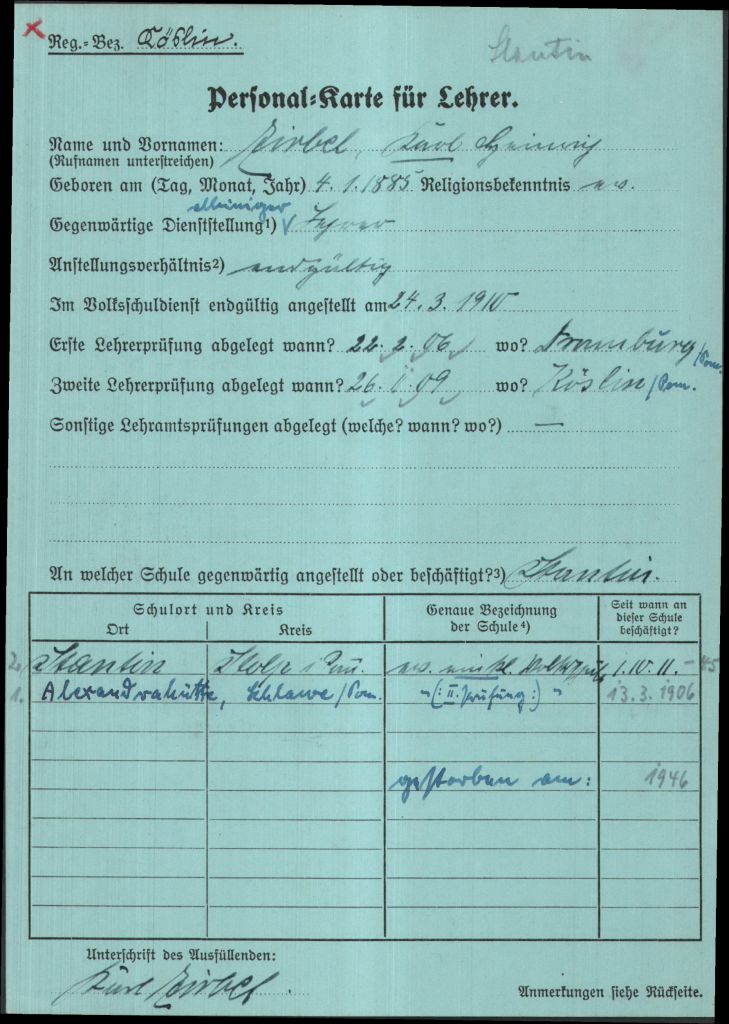 Reg.=Bez. Köslin.
Stantin
Personal=Karte für Lehrer.
Name und Vornamen: Zirbel, Karl Heinrich
(Rufnamen unterstreichen)
Geboren am (Tag, Monat, Jahr) 4. 1. 1885 Religionsbekenntnis ev.
alleiniger
Gegenwärtige Dienststellung¹) Lehrer
Anstellungsverhältnis²) endgültig
Im Volksschuldienst endgültig angestellt am 24. 3. 1910
Erste Lehrerprüfung abgelegt wann? 22. 2. 06 wo? Dramburg /Pom.
Zweite Lehrerprüfung abgelegt wann? 26. 1. 09 wo? Köslin /Pom.
Sonstige Lehramtsprüfungen abgelegt (welche? wann? wo?) —
An welcher Schule gegenwärtig angestellt oder beschäftigt?³) Stantin.
Schulort und Kreis
Ort Kreis
Genaue Bezeichnung
der Schule⁴)
Seit wann an
dieser Schule
beschäftigt?
2. Stantin Stolp i. Pom. ev. einkl. Volksschule 1. IV. 11. – 45
1. Alexandrahütte, Schlawe / Pom. " (: II. Prüfung :) " 13. 3. 1906
gestorben am: 1946
Unterschrift des Ausfüllenden:
Karl Zirbel
Anmerkungen siehe Rückseite.